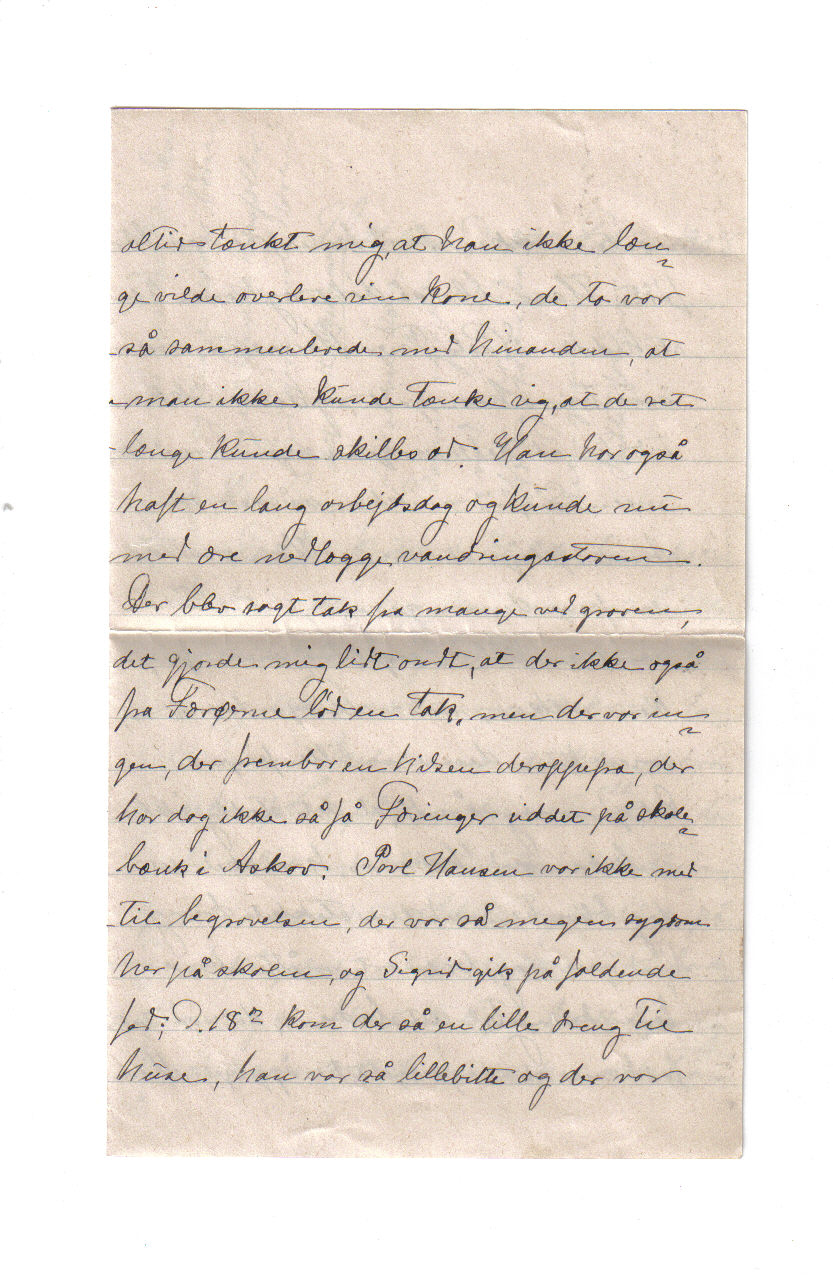 altid tænkt mig, at han ikke læn-
ge vilde overleve sin Kone, de to var
så sammenlevede med hinanden, at
man ikke kunde tænke sig, at de ret
længe kunde skilles ad. Han har også
haft en lang arbejdsdag og kunde nu
med ære nedlægge vandringsstaven.
Der blev sagt tak fra mange ved graven,
det gjorde mig lidt ondt, at der ikke også
fra Færøerne lød en tak, men der var in-
gen, der frembar en hilsen deroppefra, der
har dog ikke så få Færinger siddet på skole-
bænk i Askov. Povl Hansen var ikke med
til begravelsen, der var så megen sygdom
her på skolen, og Sigrid gik på faldende
fod; D. 18n kom der så en lille dreng til
huse, han var så lillebitte og der var